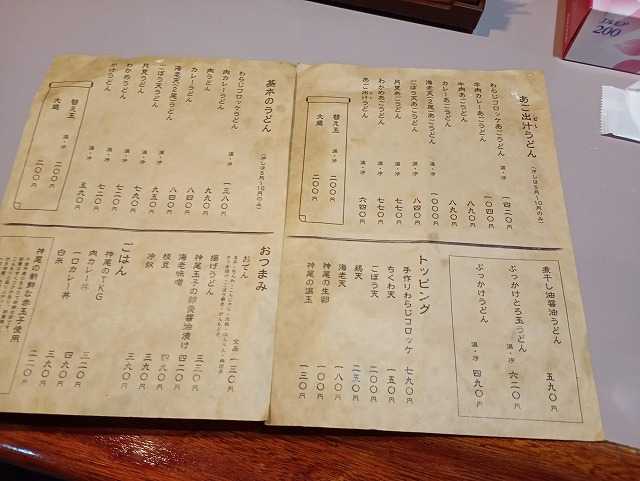 エルモア
200
あご出汁うどん (冷しは5月~10月のみ)
わらじコロッケあごうどん 温・冷 一四二〇円
牛肉カレーあごうどん 一〇四〇円
牛肉あごうどん 八九〇円
カレーあごうどん 八九〇円
海老天(2尾)あごうどん 温・冷 一〇〇〇円
ごぼう天あごうどん 温・冷 八四〇円
月見あごうどん 温・冷 七七〇円
わかめあごうどん 温・冷 七七〇円
あご出汁うどん 温・冷 六四〇円
替え玉 温・冷 二〇〇円
大盛 二〇〇円
煮干し油醤油うどん 五九〇円
ぶっかけとろ玉うどん 温・冷 六二〇円
ぶっかけうどん 温・冷 四九〇円
トッピング
手作りわらじコロッケ 七九〇円
ちくわ天 一五〇円
ごぼう天 二〇〇円
鶏天 二五〇円
海老天 一八〇円
神尾の生卵 一〇〇円
神尾の温玉 一三〇円
基本のうどん (冷しは5月~10月のみ)
わらじコロッケうどん 温・冷 一三八〇円
肉カレーうどん 九九〇円
肉うどん 温・冷 八四〇円
カレーうどん 八四〇円
海老天(2尾)うどん 温・冷 九五〇円
ごぼう天うどん 温・冷 七九〇円
月見うどん 温・冷 七二〇円
わかめうどん 温・冷 七二〇円
かけうどん 温・冷 五九〇円
替え玉 温・冷 二〇〇円
大盛 二〇〇円
おつまみ
おでん 全品 一三〇円
揚げうどん 三三〇円
神尾玉子の卵黄醤油漬け 四二〇円
海老味噌 四九〇円
枝豆 三九〇円
冷奴 三九〇円
ごはん
神尾のTKG 三二〇円
肉カレー丼 四九〇円
一口カレー丼 三九〇円
白米 二二〇円
神尾の新鮮な赤玉子使用